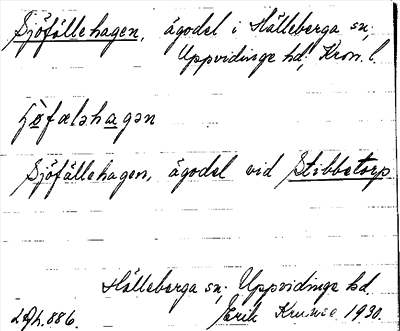 Sjöfällehagen, ägodel i Hälleberga sn;
Uppvidinge hd; Kron. l.
Sjöfällehagen, ägodel vid Stibbetorp
Hälleberga sn; Uppvidinge hd.
Erik 1930.